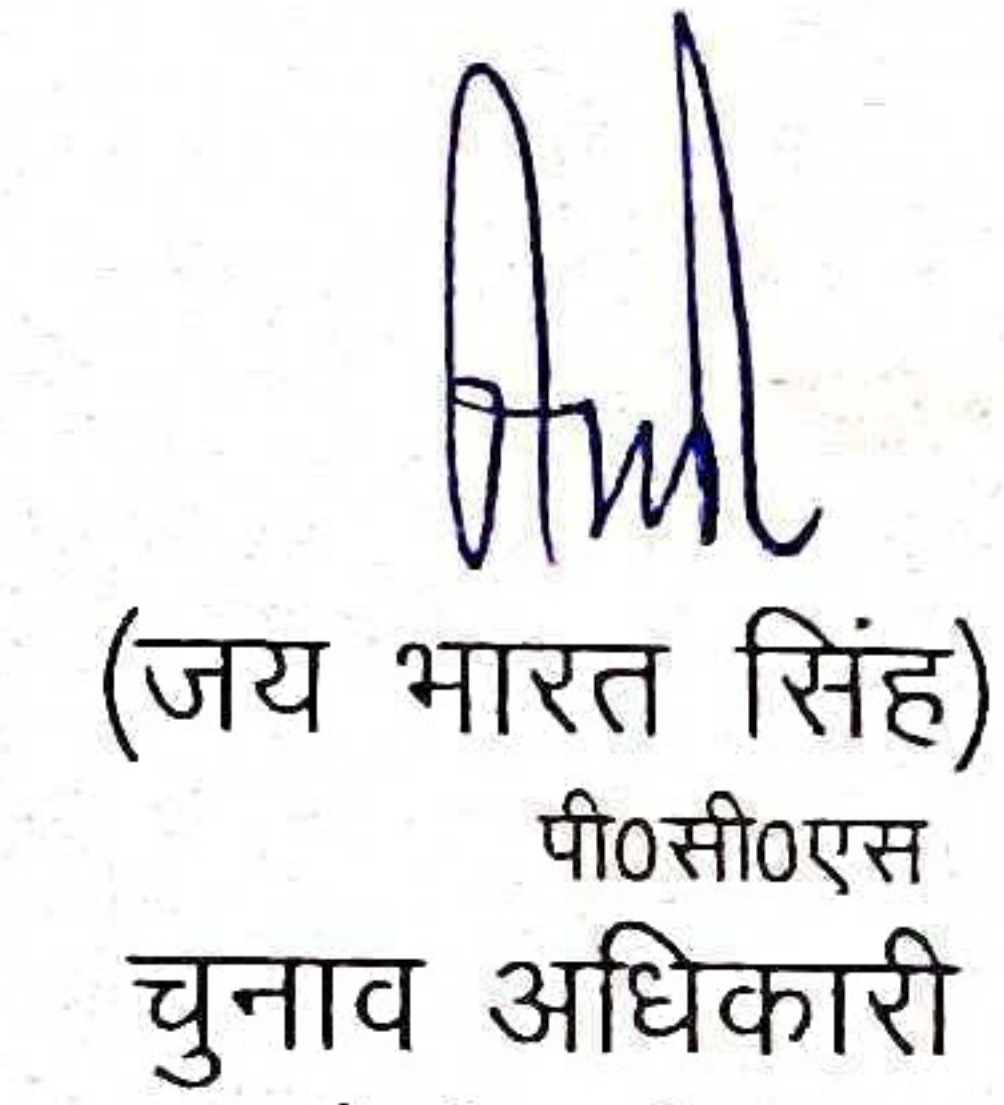 (जय भारत सिंह)
पी0सी0एस
चुनाव अधिकारी